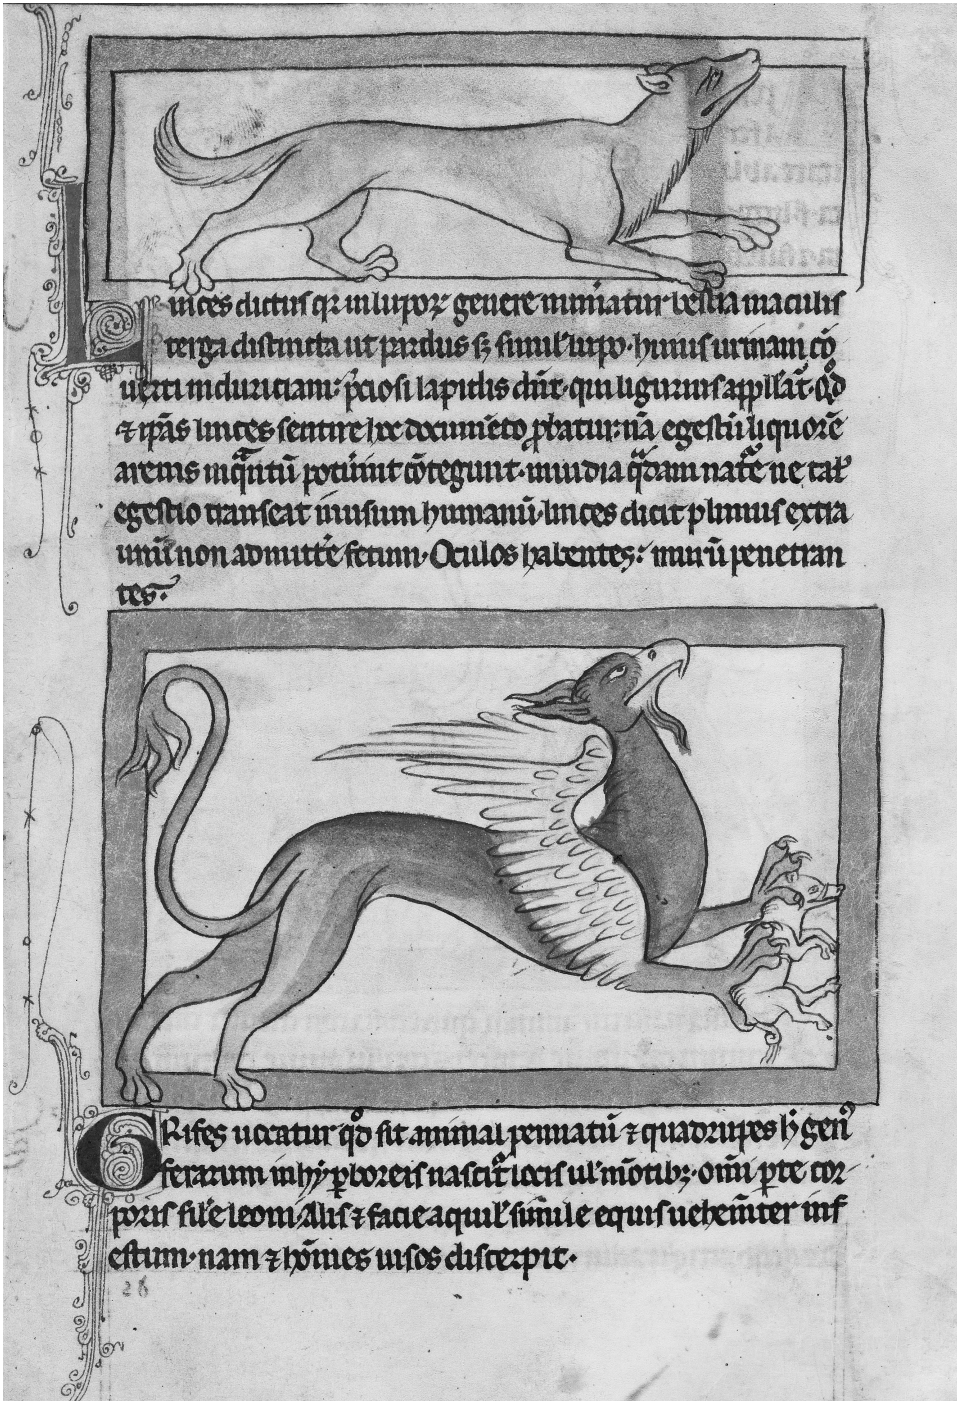 Linces dictus qr̄ in lupoꝝ genere num̄atur. bestia maculis
terga distincta ut pardus sꝫ simul̕ lupo. huius urinam cō
uerti in duriciam. p̄ciosi lapidis dn̄t. qui ligurius appll̄at᷑. qd̕
⁊ ip̄as linces sentire hoc documēto ꝓbatur. nā egestū liquorē
arenis inqͣntū potūint cōtegunt. inuidia qͣdam nat᷑e ne tal̕
egestio transeat in usum humanū. linces dicit plinius extra
unū non admitt̕e fetum. Oculos habentes. murū penetran
tes.
GRifes uocatur qd̕ sit animal pennatū ⁊ quadrupes h̕ gen᷒
ferarum in hyꝑboreis nascit᷑ locis ul̕ mōtibꝫ. omī ꝑte cor-
poris sil̕e leoni Alis ⁊ facie aquil̕ simile equis uehem̄ter inf
estum. nam ⁊ hōines uisos discerpit.
26